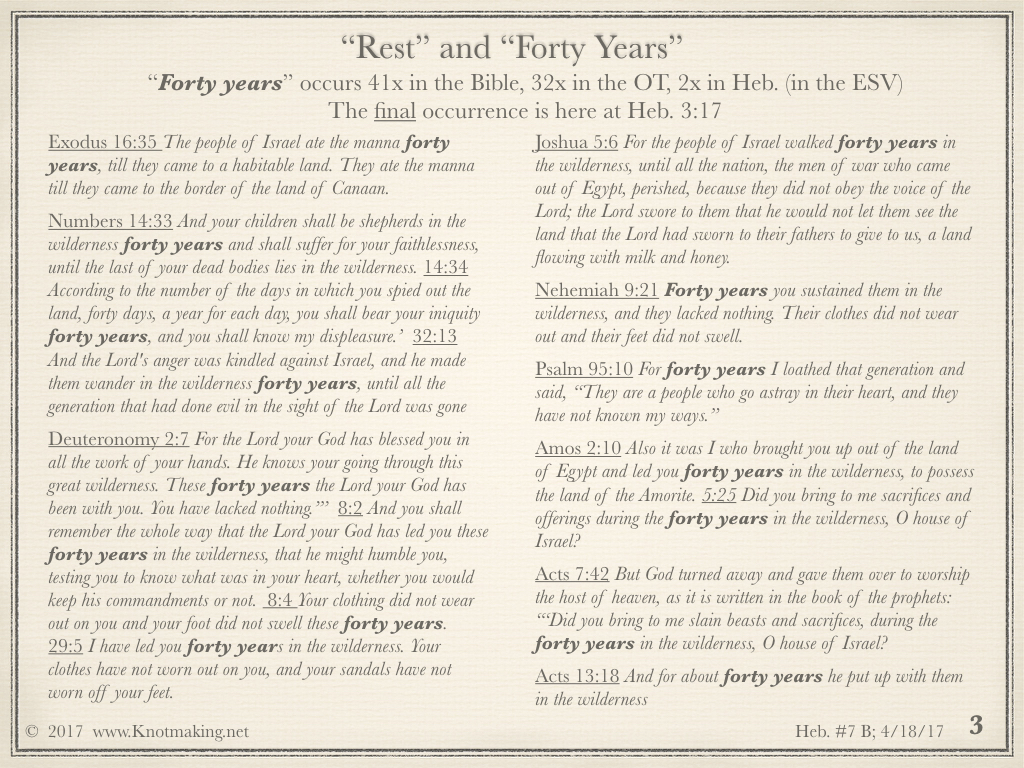 “Rest” and “Forty Years”
“Forty years” occurs 41x in the Bible, 32x in the OT, 2x in Heb. (in the ESV)
The final occurrence is here at Heb. 3:17
Exodus 16:35 The people of Israel ate the manna forty
years, till they came to a habitable land. They ate the manna
till they came to the border of the land of Canaan.
Numbers 14:33 And your children shall be shepherds in the
wilderness forty years and shall suffer for your faithlessness,
until the last of your dead bodies lies in the wilderness. 14:34
According to the number of the days in which you spied out the
land, forty days, a year for each day, you shall bear your iniquity
forty years, and you shall know my displeasure.’ 32:13
And the Lord's anger was kindled against Israel, and he made
them wander in the wilderness forty years, until all the
generation that had done evil in the sight of the Lord was gone
Deuteronomy 2:7 For the Lord your God has blessed you in
all the work of your hands. He knows your going through this
great wilderness. These forty years the Lord your God has
been with you. You have lacked nothing.”’ 8:2 And you shall
remember the whole way that the Lord your God has led you these
forty years in the wilderness, that he might humble you,
testing you to know what was in your heart, whether you would
keep his commandments or not. 8:4 Your clothing did not wear
out on you and your foot did not swell these forty years.
29:5 I have led you forty years in the wilderness. Your
clothes have not worn out on you, and your sandals have not
worn off your feet.
Joshua 5:6 For the people of Israel walked forty years in
the wilderness, until all the nation, the men of war who came
out of Egypt, perished, because they did not obey the voice of the
Lord; the Lord swore to them that he would not let them see the
land that the Lord had sworn to their fathers to give to us, a land
flowing with milk and honey.
Nehemiah 9:21 Forty years you sustained them in the
wilderness, and they lacked nothing. Their clothes did not wear
out and their feet did not swell.
Psalm 95:10 For forty years I loathed that generation and
said, “They are a people who go astray in their heart, and they
have not known my ways.”
Amos 2:10 Also it was I who brought you up out of the land
of Egypt and led you forty years in the wilderness, to possess
the land of the Amorite. 5:25 Did you bring to me sacrifices and
offerings during the forty years in the wilderness, O house of
Israel?
Acts 7:42 But God turned away and gave them over to worship
the host of heaven, as it is written in the book of the prophets:
“‘Did you bring to me slain beasts and sacrifices, during the
forty years in the wilderness, O house of Israel?
Acts 13:18 And for about forty years he put up with them
in the wilderness
© 2017 www.Knotmaking.net
Heb. #7 B; 4/18/17 3